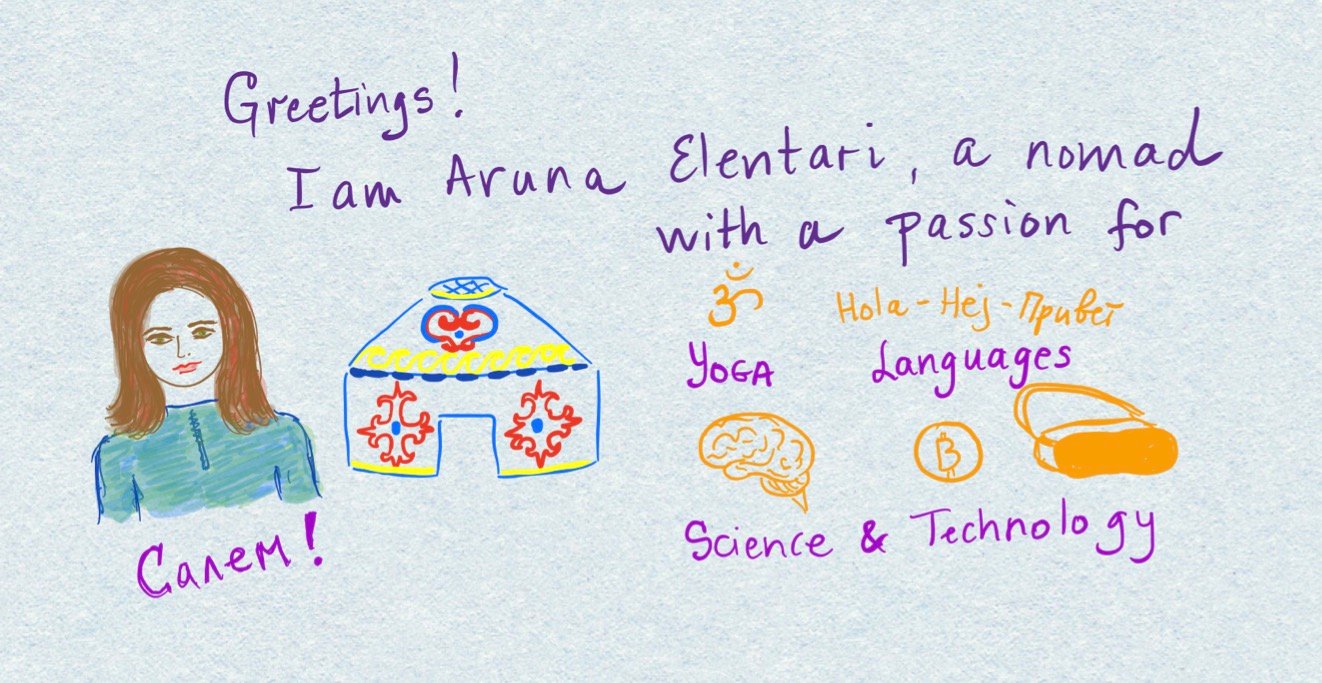 Greetings!
I am Aruna Elentari, a nomad
with a passion for
ॐ
Hola - Hej - Привет
YOGA
Languages
B
Science & Technology
Салем!